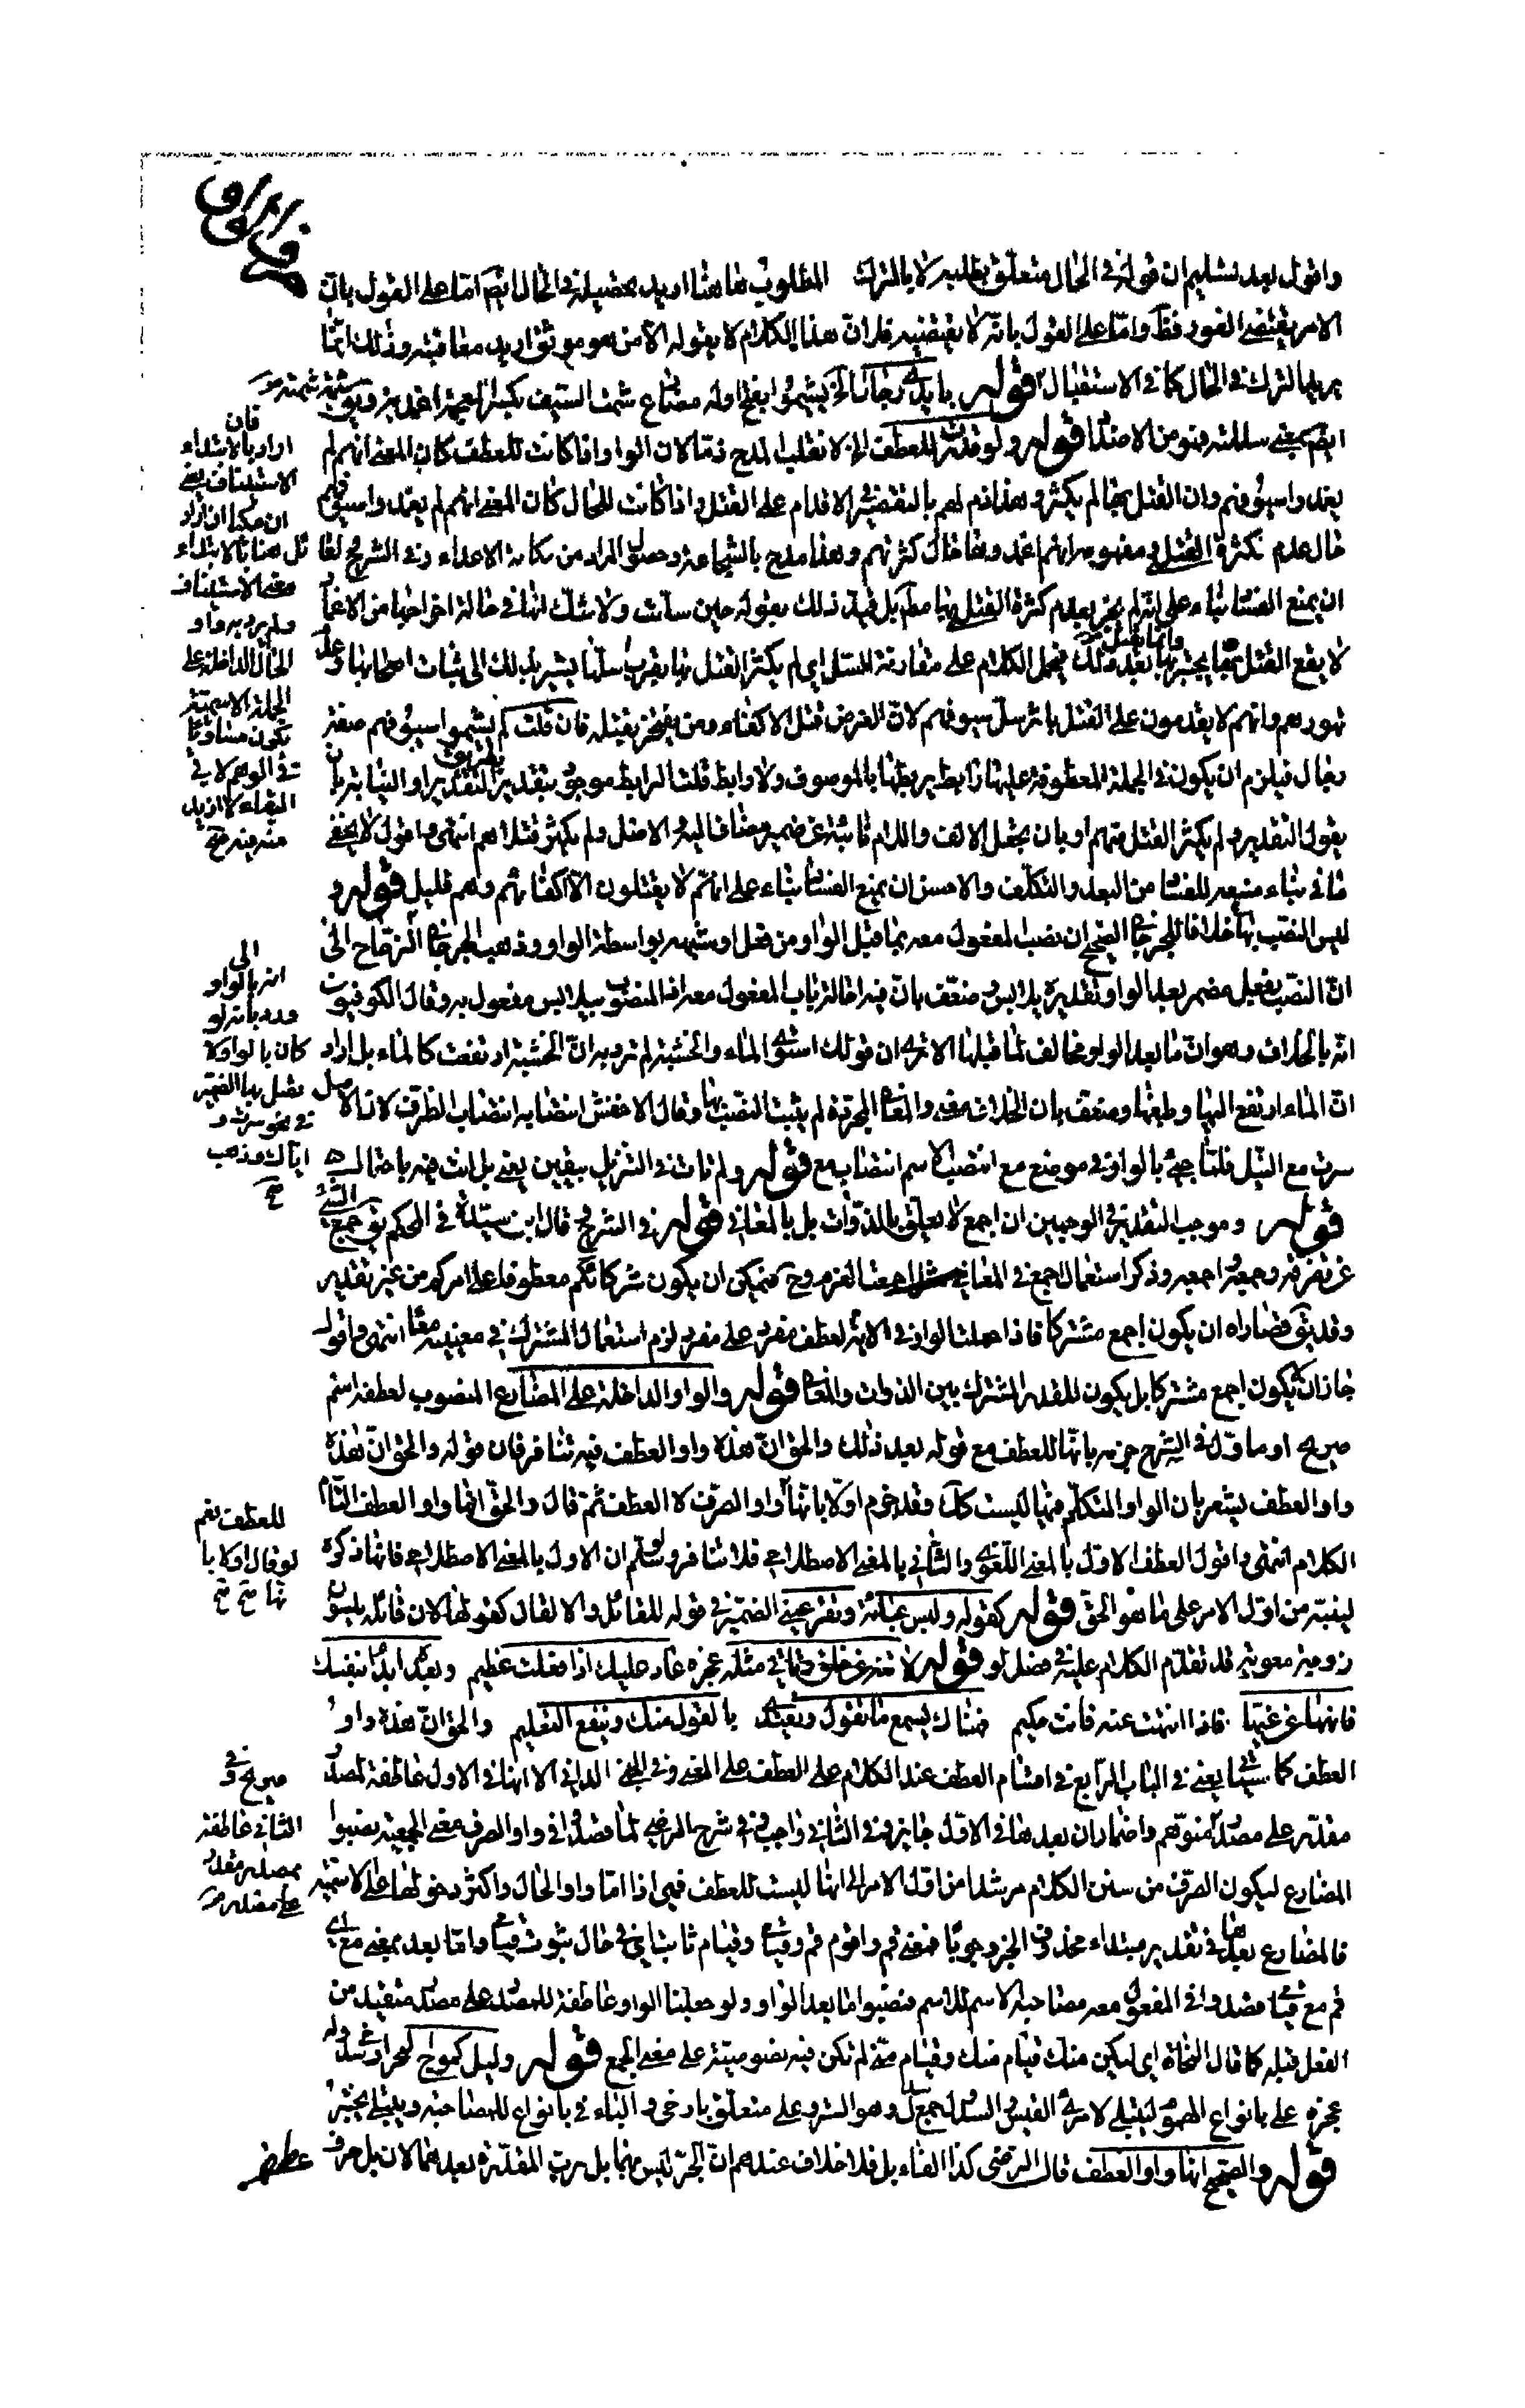 في الواو
واقول بعد تسليم ان قوله في الحال متعلق بطلبه لا بالترك المطلوب هاهنا اريد تحصيله في الحال ايض اما على القول بان
الامر يقتضي الفور فظ واما على القول بانه لا يقتضيه فلان هذا الكلام لا يقوله الا من هو موثق اريد معاقبته وذلك انما
يريد الترك في الحال كما في الاستقبال قوله بايدي رجال الخ يشيموا بفتح اوله مضارع شمت السيف بكسر المعجمة اغمدته ويق شمته
ايض بمعنى سللته فهو من الاضداد قوله ولو قدرت للعطف الخ لانقلب المدح ذما لان الواو اذا كانت للعطف كان المعنى انهم لم
يغمدوا سيوفهم وان القتل بها لم يكثر وهذا ذم لهم بالتقصير في الاقدام على القتل واذا كانت للحال كان المعنى انهم لم يغمدوا سيوفهم
حال عدم كثرة القتلى ومفهومه انهم اغمدوها حال كثرتهم وهذا مدح بالشجاعة وحصول المراد من نكاية الاعداء وفي الشرح لقائل
ان يمنع الفساد بناء على انه لم يخبر بعدم كثرة القتلى بها مط بل قيد ذلك بقوله حين سلت ولا شك انها في حالة اخراجها من الاغماد
لا يقع القتل بها وانما يقع القتل بها بعد ذلك فيحمل الكلام على مقارنة السل اي لم يكثر القتل بها بقرب سلها يشير بذلك الى ثبات اصحابها وعدم
تهورهم وانهم لا يقدمون على القتل باثر سل سيوفهم لان الغرض قتل الاكفاء ومن يفتخر بقتله فان قلت لم يشيموا سيوفهم صفة
رجال فيلزم ان يكون في الجملة المعطوفة عليها رابط يربطها بالموصوف ولا رابط قلت الرابط موجود بتقدير التقدير او النيابة بان
يقول التقدير ولم يكثر القتل منهم او بان يجعل الالف واللام نائبة عن ضمير مضاف اليه والاصل ولم يكثر قتلاهم انتهى واقول لا يخفى
ما في بناء منعه للفساد من البعد والتكلف والاحسن ان يمنع الفساد بناء على انهم لا يقتلون الا اكفائهم وهم قليل قوله و
ليس النصب بها خلافا للجرجاني الصحيح ان نصب المفعول معه بما قبل الواو من فعل او شبهه بواسطة الواو وذهب الجرجاني الزجاح الى
ان النصب بفعل مضمر بعد الواو تقديره يلابس وضعف بان فيه احالة باب المفعول معه اذ المنصوب بيلابس مفعول به وقال الكوفيون
انه بالخلاف وهو ان ما بعد الواو مخالف لما قبلها الا ترى ان قولك استوى الماء والخشبة لم ترد به ان الخشبة ارتفعت كالماء بل اراد
ان الماء ارتفع اليها وطمها وضعف بان الخلاف معنى والمعاني المجردة لم يثبت النصب بها وقال الاخفش انتصابه انتصاب الظرف لان الاصل
سرت مع النيل فلما جيء بالواو في موضع مع انتصب الاسم انتصاب مع قوله ولم تأت في التنزيل بيقين يعني بل اتت فيه باحتمال
قوله وموجب التقدير في الوجهين ان اجمع لا يعلق بالذوات بل بالمعاني قوله في الشرح قال ابن سيدة في المحكم يق جمع الشيء
عن تفرقة وجمعه اجمعه وذكر استعمال اجمع في المعاني اجمعنا العزم وح فيمكن ان يكون شركائكم معطوفا على امركم من غير تقدير
وقد يق قصاراه ان يكون اجمع مشتركا فاذا جعلت الواو في الاية لعطف مفرد على مفرد لزم استعمال المشترك في معنييه معا انتهى واقول
جاز ان لا يكون اجمع مشتركا بل يكون للقدر المشترك بين الذوات والمعاني قوله والواو الداخلة على المضارع المنصوب لعطفه اسم
صريح او ماول في الشرح جزمه بانها للعطف مع قوله بعد ذلك والحق ان هذه واو العطف فيه تنافر فان قوله والحق ان هذه
واو العطف يشعر بان الواو المتكلم فيها ليست كذلك وقد جزم اولا بانها واو الصرف لا العطف ثم قال والحق انها واو العطف التام
الكلام انتهى واقول العطف الاول بالمعنى اللغوي والثاني بالمعنى الاصطلاحي فلا تنافر ولو سلم ان الاول بالمعنى الاصطلاحي فانما ذكره
لينبه من اول الامر على ما هو الحق قوله كقوله ولبس عباءة وتقر عيني الضمير في قوله للقائل والا لقال كقولها لان قائله ميسون
زوجة معوية قد تقدم الكلام عليه في فصل لو قوله لا تنه عن خلق وتاتي مثله عجزه عار عليك اذا فعلت عظيم وبعده ابدا بنفسك
فانهها عن غيها فاذا انتهت عنه فانت حكيم فهناك يسمع ما تقول ويقتدى بالقول منك وينفع التعليم والحق ان هذه واو
العطف كما سياتي يعني في الباب الرابع في اقسام العطف عند الكلام على العطف على المعنى وفي الجنى الداني الا انها في الاول عاطفة لمصدر
مقدر على مصدر متوهم واضمار ان بعدها في الاول جايز وفي الثاني واجب وفي شرح الرضي لما قصدوا في واو الصرف معنى الجمعية نصبوا
المضارع ليكون الصرف من سنن الكلام مرشدا من اول الامر الى انها ليست للعطف فهي اذا اما واو الحال واكثر دخولها على الاسمية
فالمضارع بعدها في تقدير مبتداء محذوف الخبر وجوبا فمعنى قم واقوم قم وقيامي وقيام ثابتا في حال ثبوت قيامي واما بعد بمعنى مع اي
قم مع قيامي قصدوا في المفعول معه مصاحبة الاسم للاسم فنصبوا ما بعد الواو ولو جعلنا الواو عاطفة للمصدر على مصدر متقيد من
الفعل قبله كما قال النحاة اي ليكن منك قيام منك وقيام مني لم تكن فيه نصوصية على معنى الجمع قوله وليل كموج البحر ارخى سدوله
عجزه علي بانواع الهموم ليبتلي لامرئ القيس والسدول جمع سدل وهو الستر وعلي متعلق بارخى والباء في بانواع للمصاحبة ويبتلي يختبر
قوله والصحيح انها واو العطف قال الرضي كذا الفاء بل فلا خلاف عندهم ان الجر ليس بهما بل برب المقدرة بعدهما لان بل حرف
عطف
فان
اراد بالابتداء
الاستيناف يعني
معنى الاستيناف
ولم يرد به واو
الحال الداخلة على
الجملة الاسمية
الى
انه بالواو
ورد بانه لو
كان بالواو لا
تصل بها الضمير
في نحو سرت و
اياك وذهب
للعطف نعم
لو قال اولا با
نها
صريح وفي
الثاني عاطفة
بمصدر مقدر
على مصدر